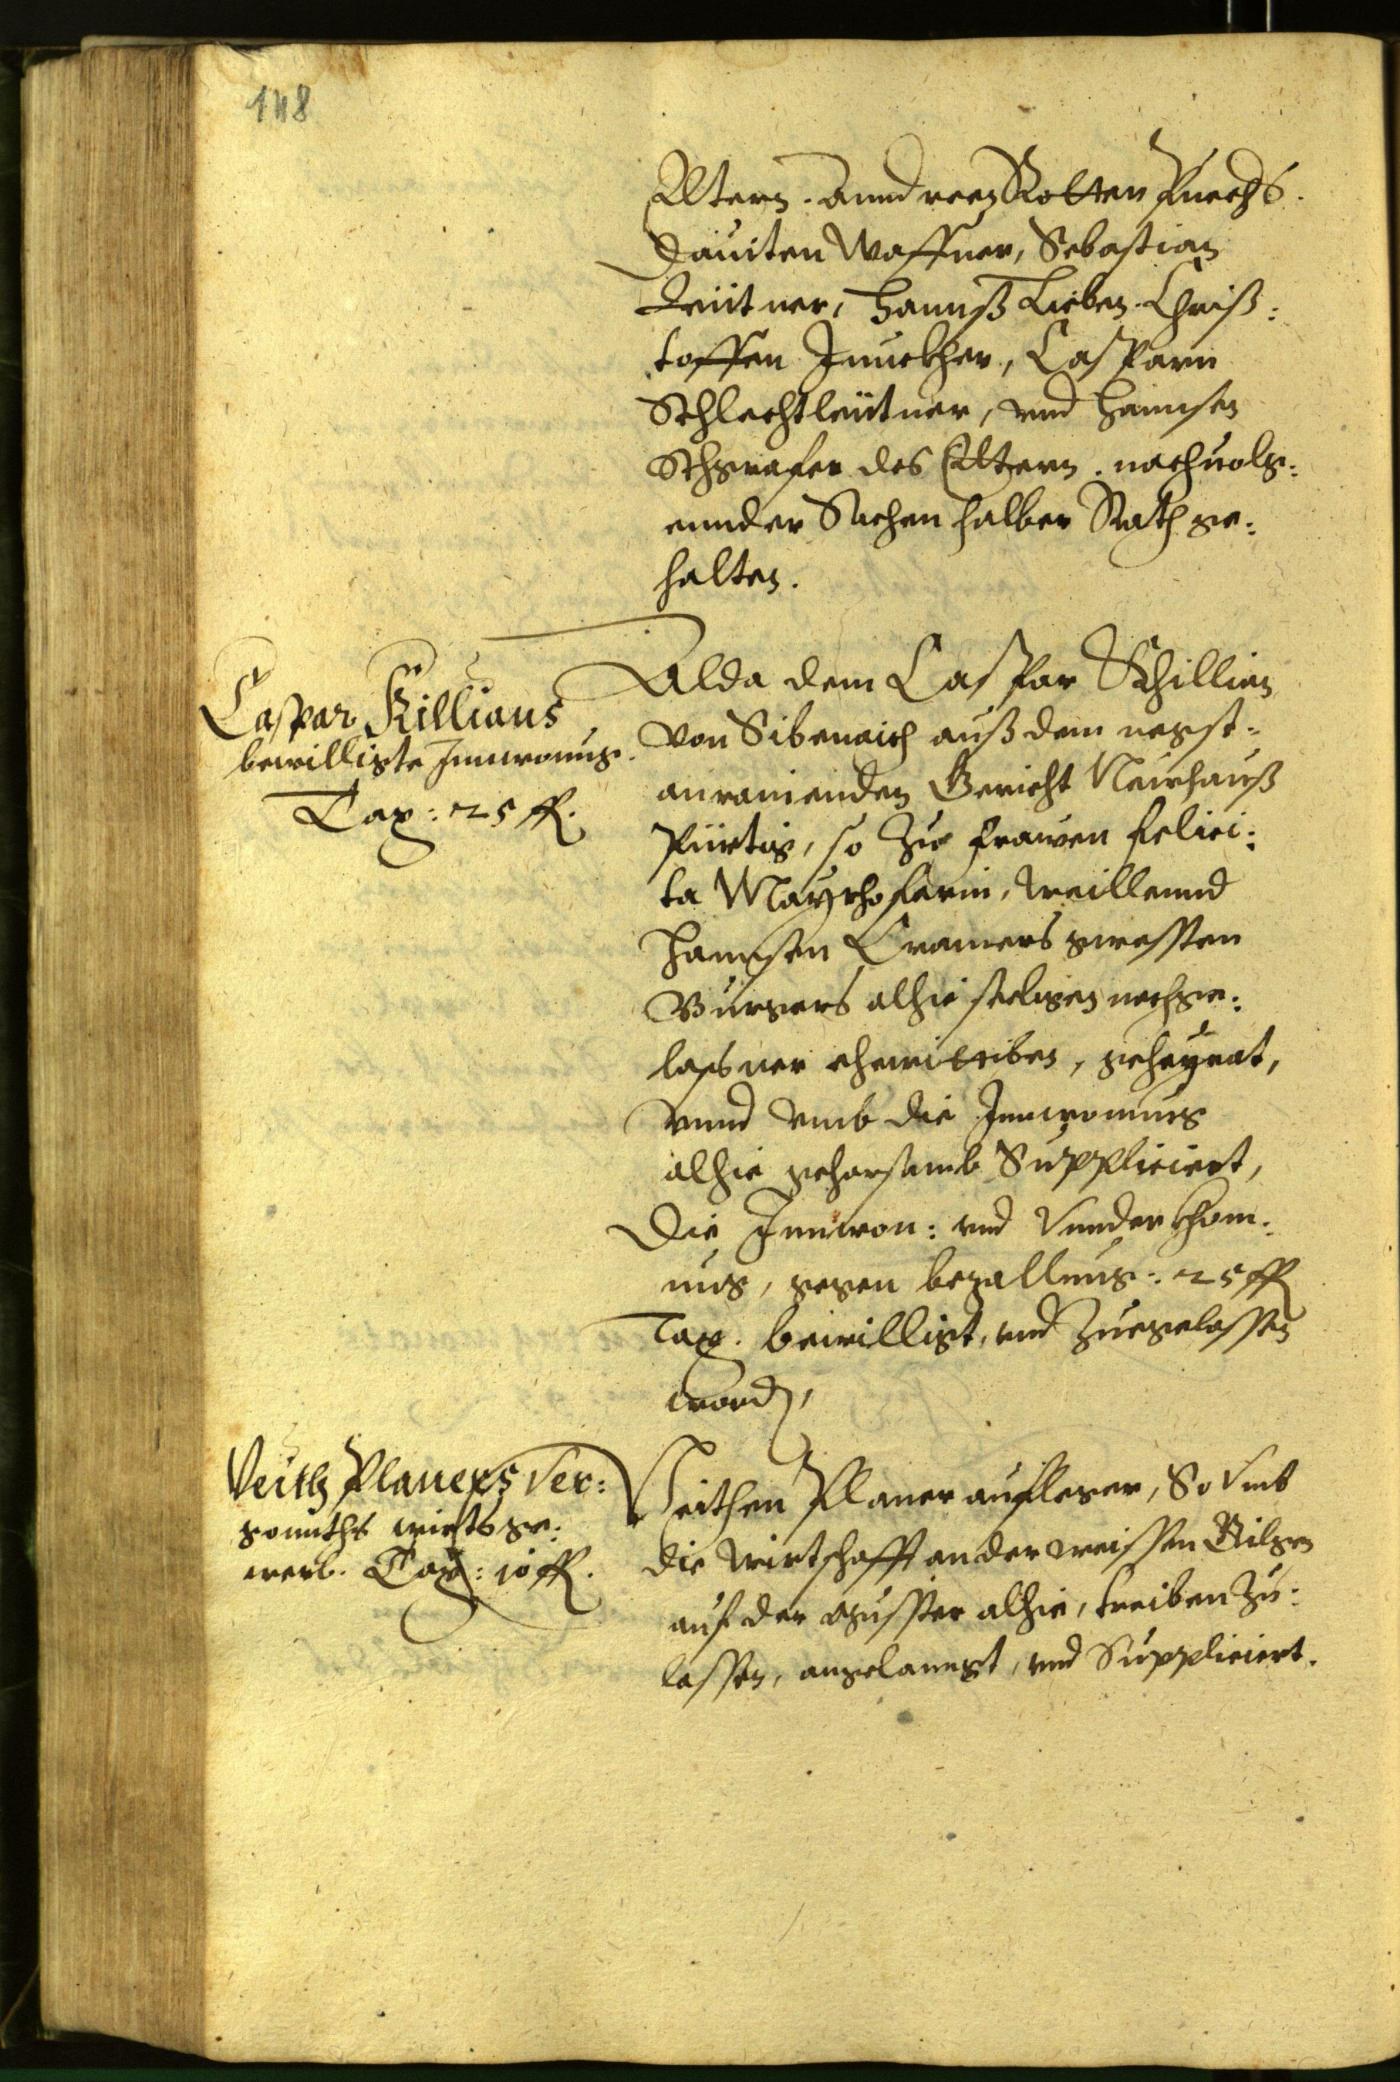 148
Eltern. Anndreen Rottenpuechs.
Dauiten Waffner, Sebastian
Leütner, Hannß Lieben. Chriß:
toffen Junckher, Casparn
Schlechtleütner, vnd Hannsen
Schgrafer des Elltern. nachuolg:
ennder Sachen halber Rath ge:
halten.
Caspar Killians
bewilligte Innwonung.
Tax: 25 fl.
Alda dem Caspar Khillien
von Sibenaich auß dem negst:
anrainenden Gericht Neuhauß
pürtig, so Zue frawen felici:
ta Mayrhoferin, weillennd
Hannsen Cramers gwessten
Burgers alhie seeligen nachge:
lassner ehewittiben, geheyrat,
vnnd vmb die Innwonung
alhie gehorsamb Suppliciert,
Die Innwon: vnd Vnnderkhom:
mng, gegen bezallung: 25 fl
Tax. bewilligt, vnd Zuegelassen
word,
Veith Planers Ver:
gonnths wirtsge:
werb. Tax: 10 fl.
Veithen Planer aufleger, So Vmb
die Wirtschafft an der weissen Gilgen
auf der alhie, treiben zu:
lassen, angelanngt, vnd Suppliciert.